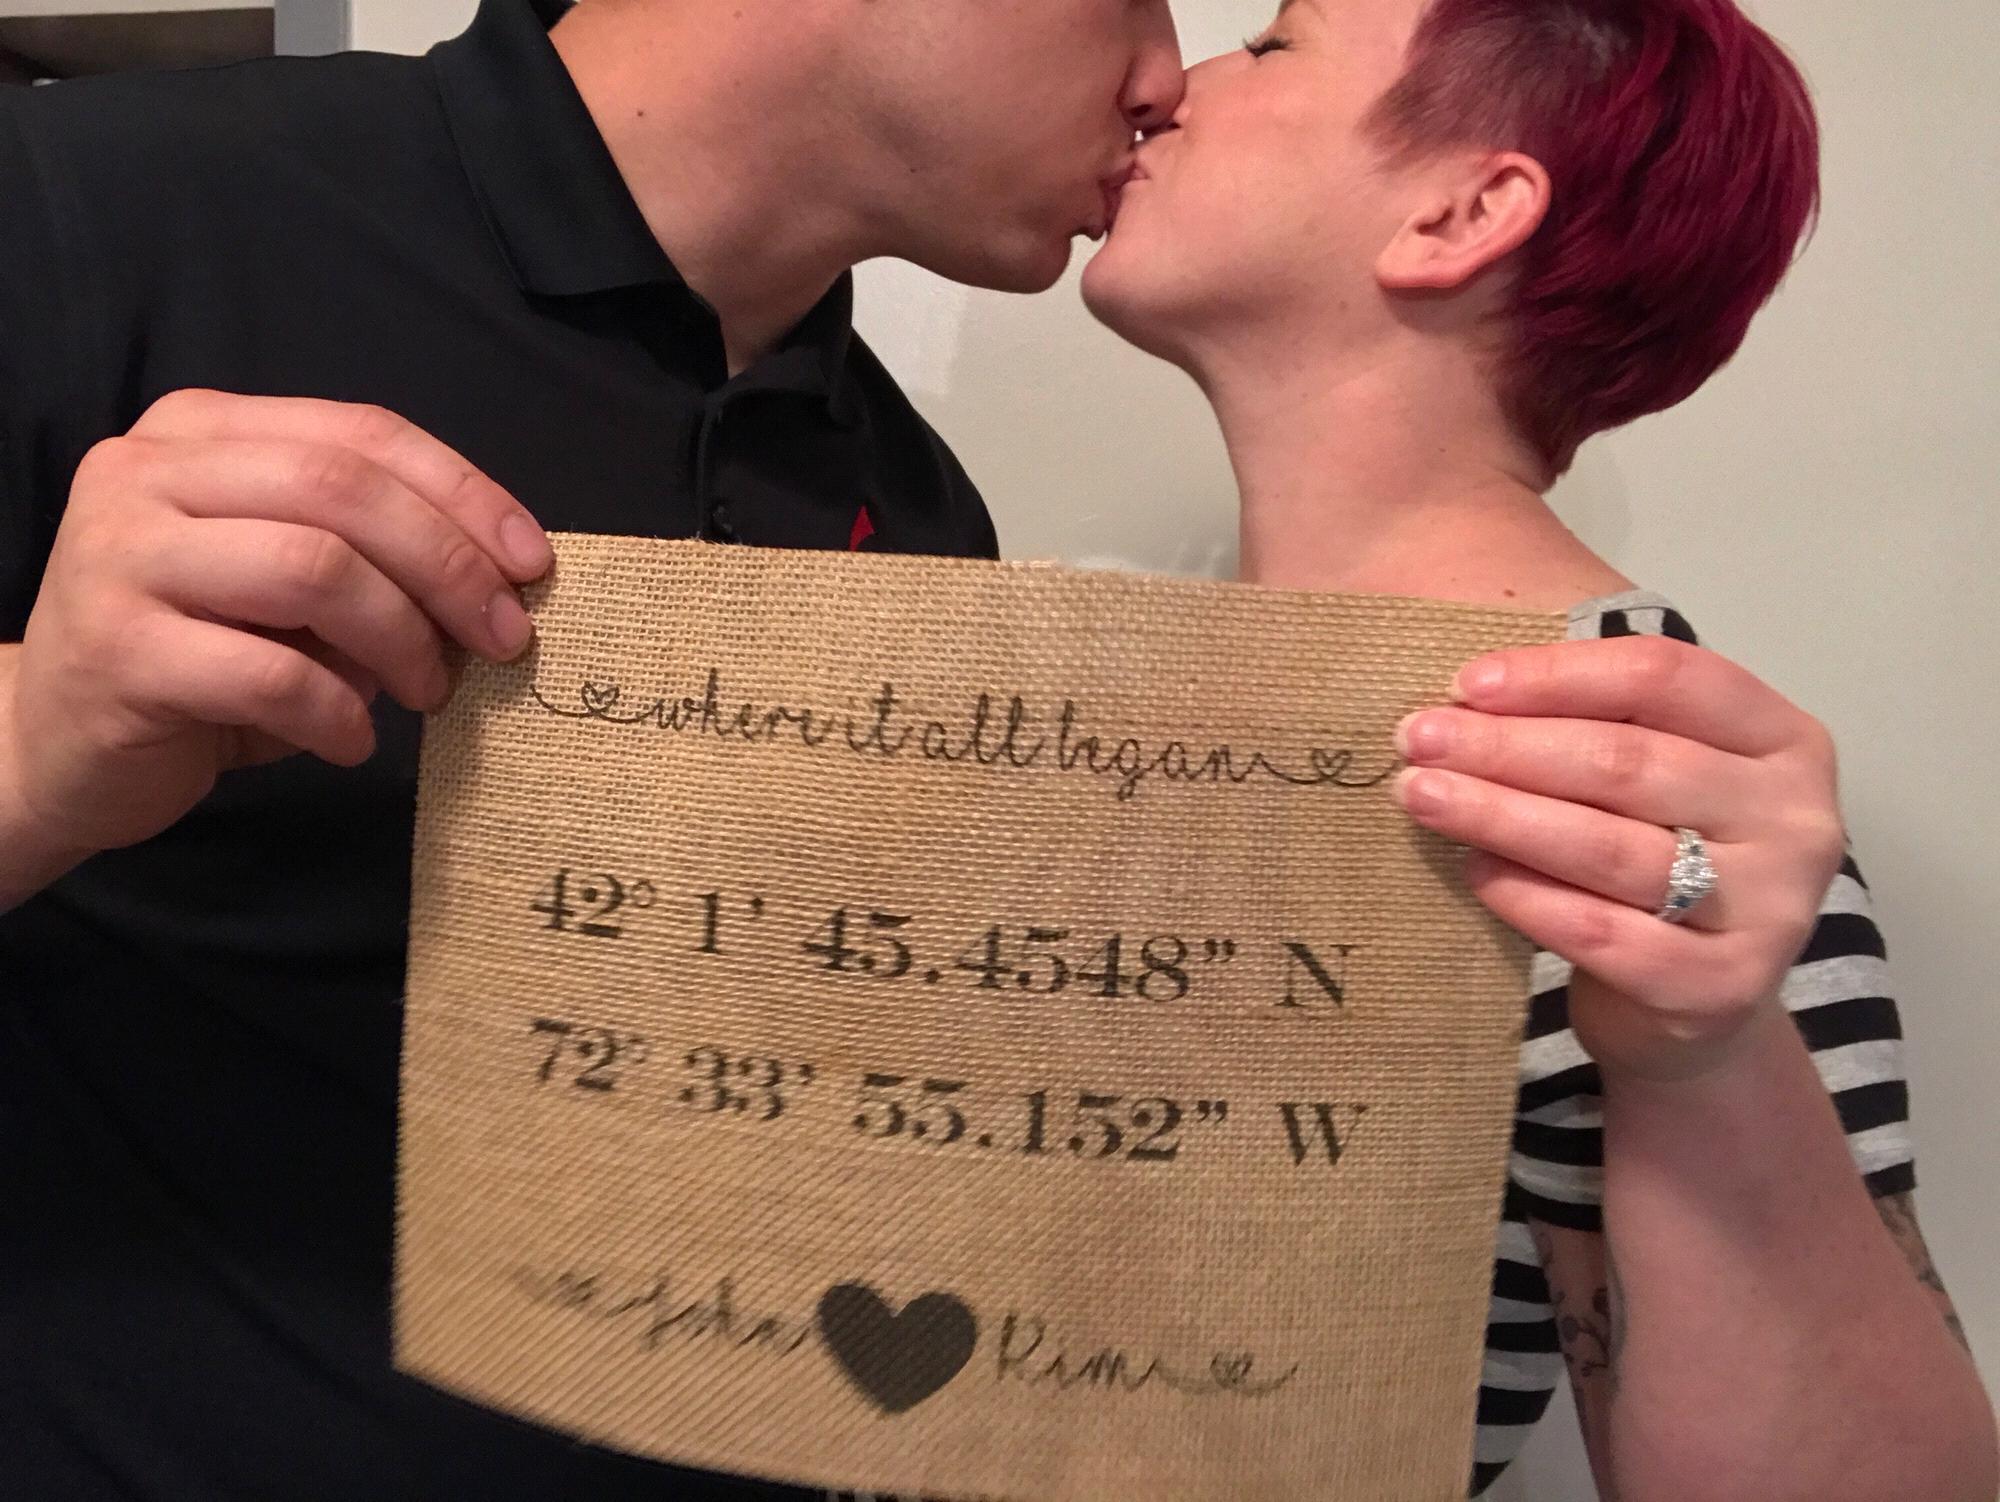 where it all began
42° 1’ 45.4548” N
72° 33’ 55.152” W
John Kim